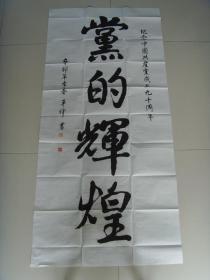 紀念中國共產黨成立九十周年
黨的輝煌
辛卯年
書